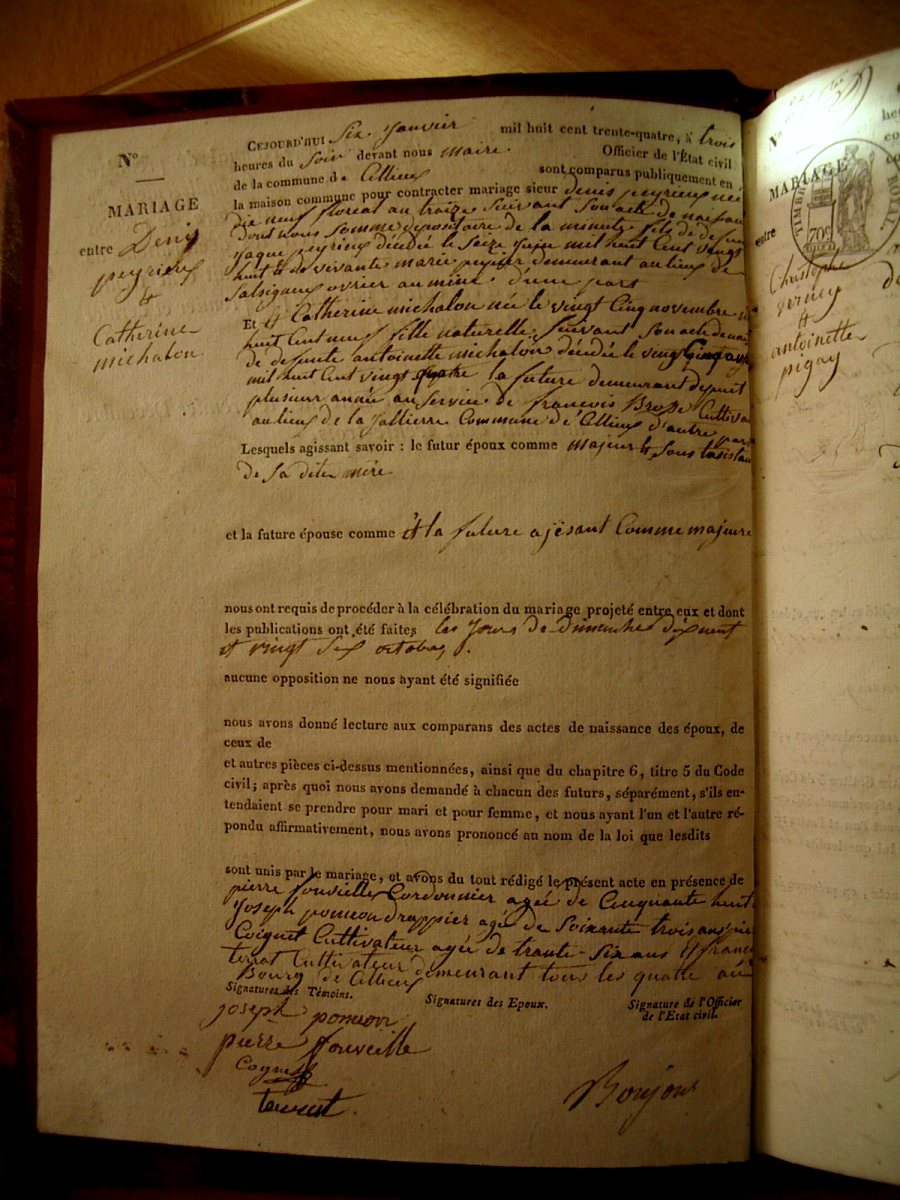 N°
MARIAGE
entre Denis
peyrieux
&
Catherine
michalon
CEJOURD'HUI Six janvier mil huit cent trente-quatre, à trois
heures du Soir devant nous maire Officier de l'État civil
de la commune de Cellieu sont comparus publiquement en
la maison commune pour contracter mariage sieur denis peyrieux né
dix neuf floreal an treize Suivant Son acte de
dont nous Somme depositaire de la minute fils de
jaque peyrieux décédé le Seize juin mil huit Cent vingt
huit & de vivante marie demeurant au lieu de
Salsigaux ovrier au mine d'une part
Et Catherine michalon née le vingt Cinq novembre
huit Cent neuf fille naturelle Suivant Son acte de
de defunte antoinette michalon décédée le vingt Cinq
mil huit Cent vingt quatre la future demeurant depuit
plusieur année au Service de françois Brosse Cultiva
au lieu de la Jallierre Commune de Cellieu d'autre part
Lesquels agissant savoir : le futur époux comme majeur & Sous lasistan
de Sa dite mère
et la future épouse comme et la future ajésant Comme majeure
nous ont requis de procéder à la célébration du mariage projeté entre eux et dont
les publications ont été faites les Jours de dimanche dixneuf
et vingt Six octobre
aucune opposition ne nous ayant été signifiée
nous avons donné lecture aux comparans des actes de naissance des époux, de
ceux de
et autres pièces ci-dessus mentionnées, ainsi que du chapitre 6, titre 5 du Code
civil; après quoi nous avons demandé à chacun des futurs, séparément, s'ils en-
tendaient se prendre pour mari et pour femme, et nous ayant l'un et l'autre ré-
pondu affirmativement, nous avons prononcé au nom de la loi que lesdits
sont unis par le mariage, et avons du tout rédigé le présent acte en présence de
pierre fonvielle Cordonnier agée de Cinquante huit
Joseph pomeon drappier agé de Soixante trois ans
Coignet Cultivateur agée de trante Six ans &
terrat Cultivateur demeurant tous les quatre au
Bourg de Cellieu
Signatures des Témoins.
Signatures des Epoux.
Signature de l'Officier
de l'État civil.
joseph pomeon
pierre fonveille
Boujour
N°
MARIAGE
entre
Christophe
verney
&
antoinette
pigay